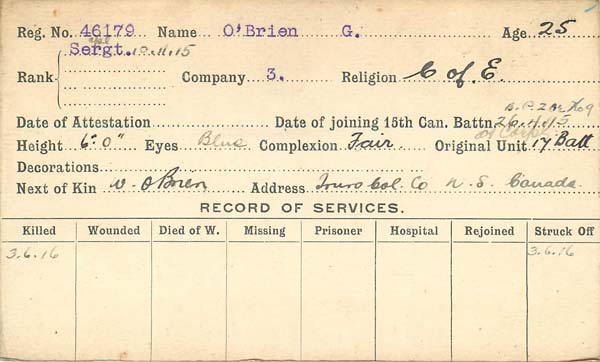 Reg. No. 46179 Name O'Brien G. Age 25
Sergt. 10.11.15
Rank Company 3. Religion C of E.
Date of Attestation Date of joining 15th Can. Battn. 26.4.15
Height 6'0" Eyes Blue Complexion Fair Original Unit 17 Batt
Decorations
Next of Kin W. O'Brien Address Truro Col. Co N.S. Canada.
RECORD OF SERVICES.
Killed Wounded Died of W. Missing Prisoner Hospital Rejoined Struck Off
3.6.16 3.6.16